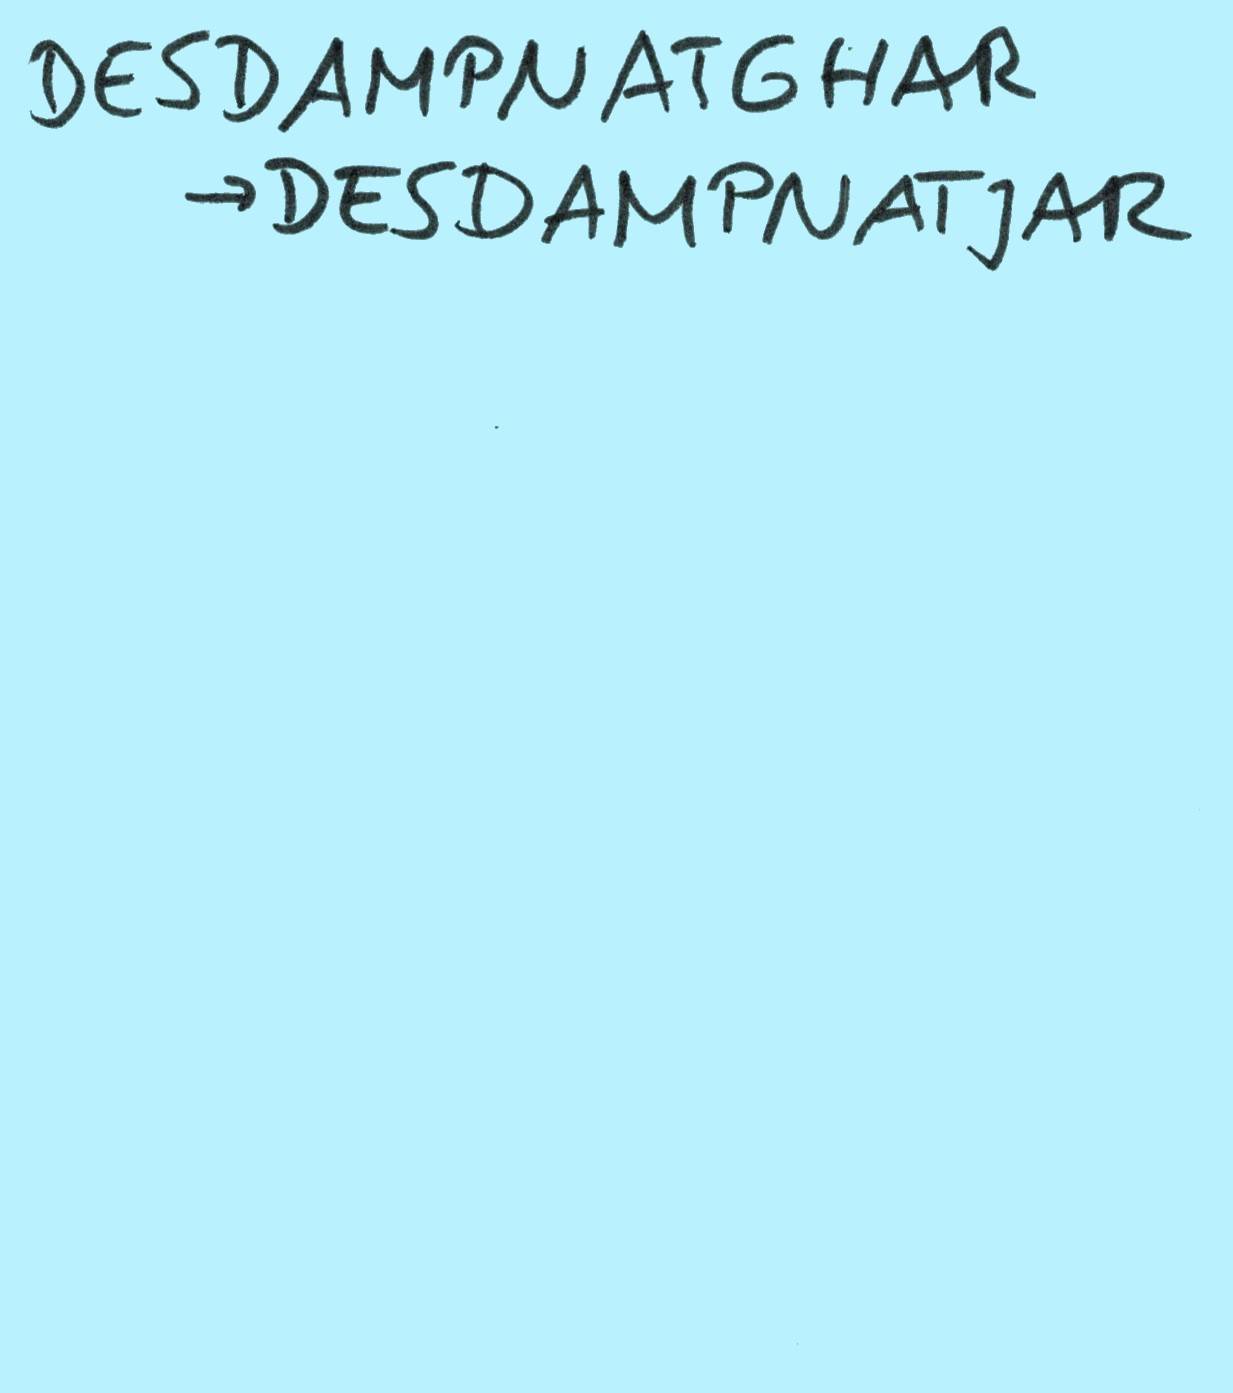 DESDAMPNATGHAR
→DESDAMPNATJAR